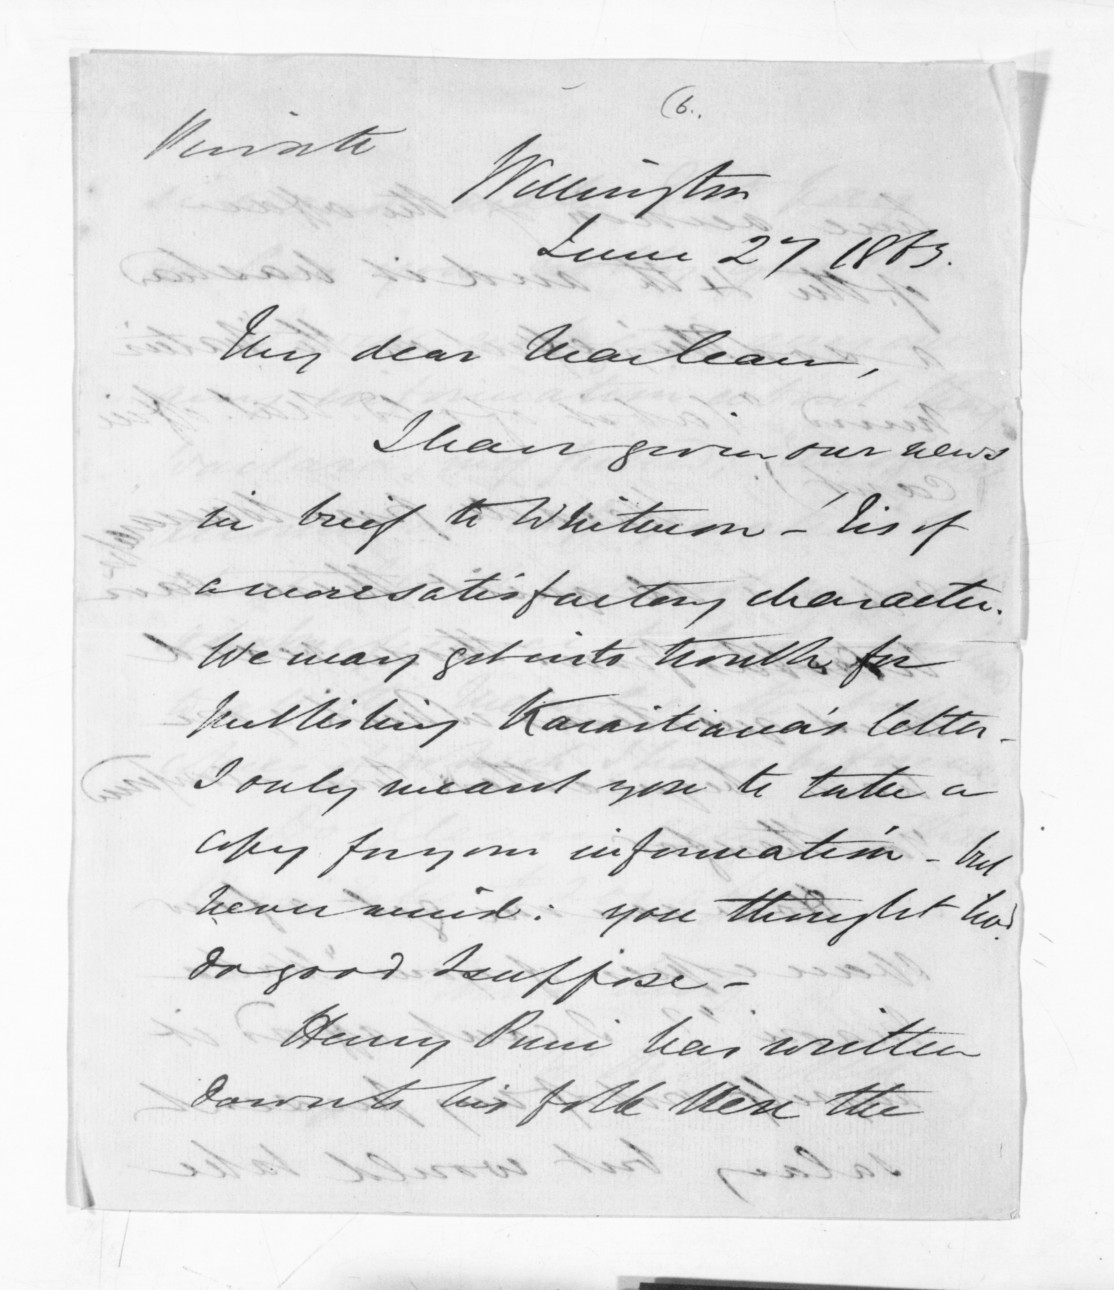 (6.
Private
Wellington
June 27 1863.
My dear MacLean,
I have given our news
in brief to Whitmore - 'Tis of
a more satisfactory character.
We may get into trouble for
publishing Karaitiana's letter -
I only meant you to take a
copy for your information - but
never mind: you thought 'twd.
do good I suppose -
Henry Puni has written
down to his folk here the